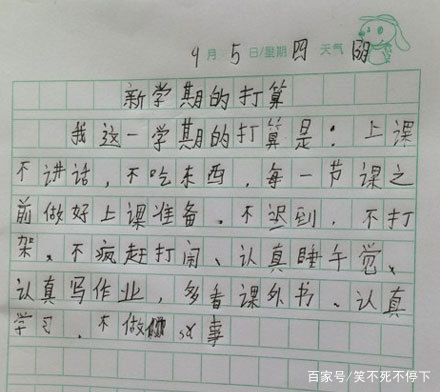 9月5日/星期四 天气 阴
新学期的打算
我这一学期的打算是：上课
不讲话，不吃东西，每一节课之
前做好上课准备、不迟到，不打
架、不疯赶打闹、认真睡午觉、
认真写作业，多看课外书、认真
学习，不做事
百家号/笑不死不停下